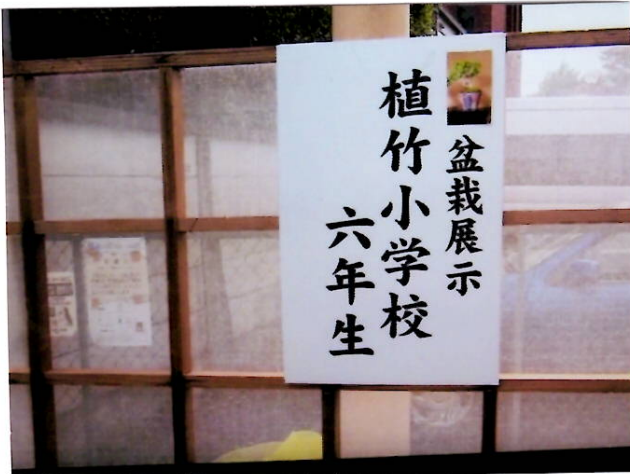 盆栽展示
植竹小学校
六年生